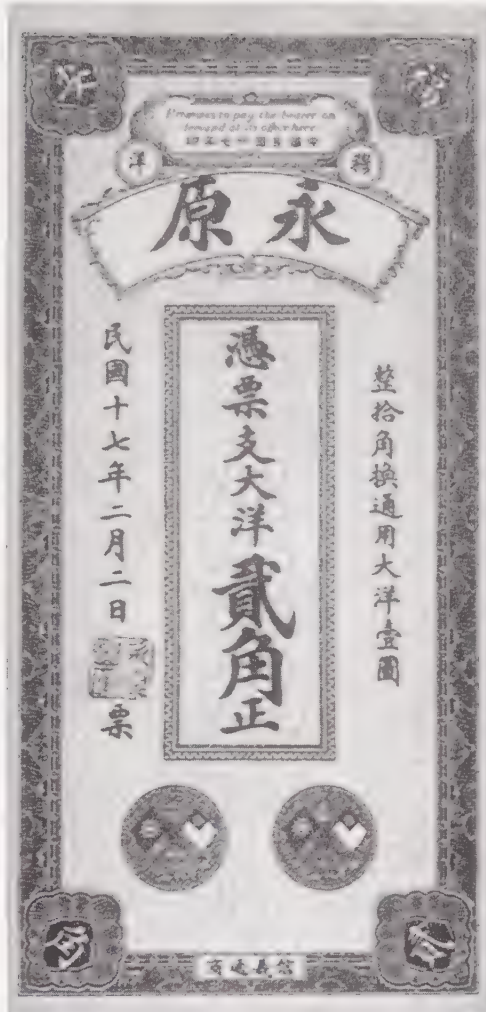 Promises to pay the bearer on
demand at its office here
中華民國十七年四
洋
永原
整拾角換通用大洋壹圓
憑票支大洋貳角正
民國十七年二月二日
票
角